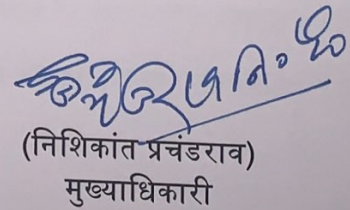 (निशिकांत प्रचंडराव)
मुख्याधिकारी